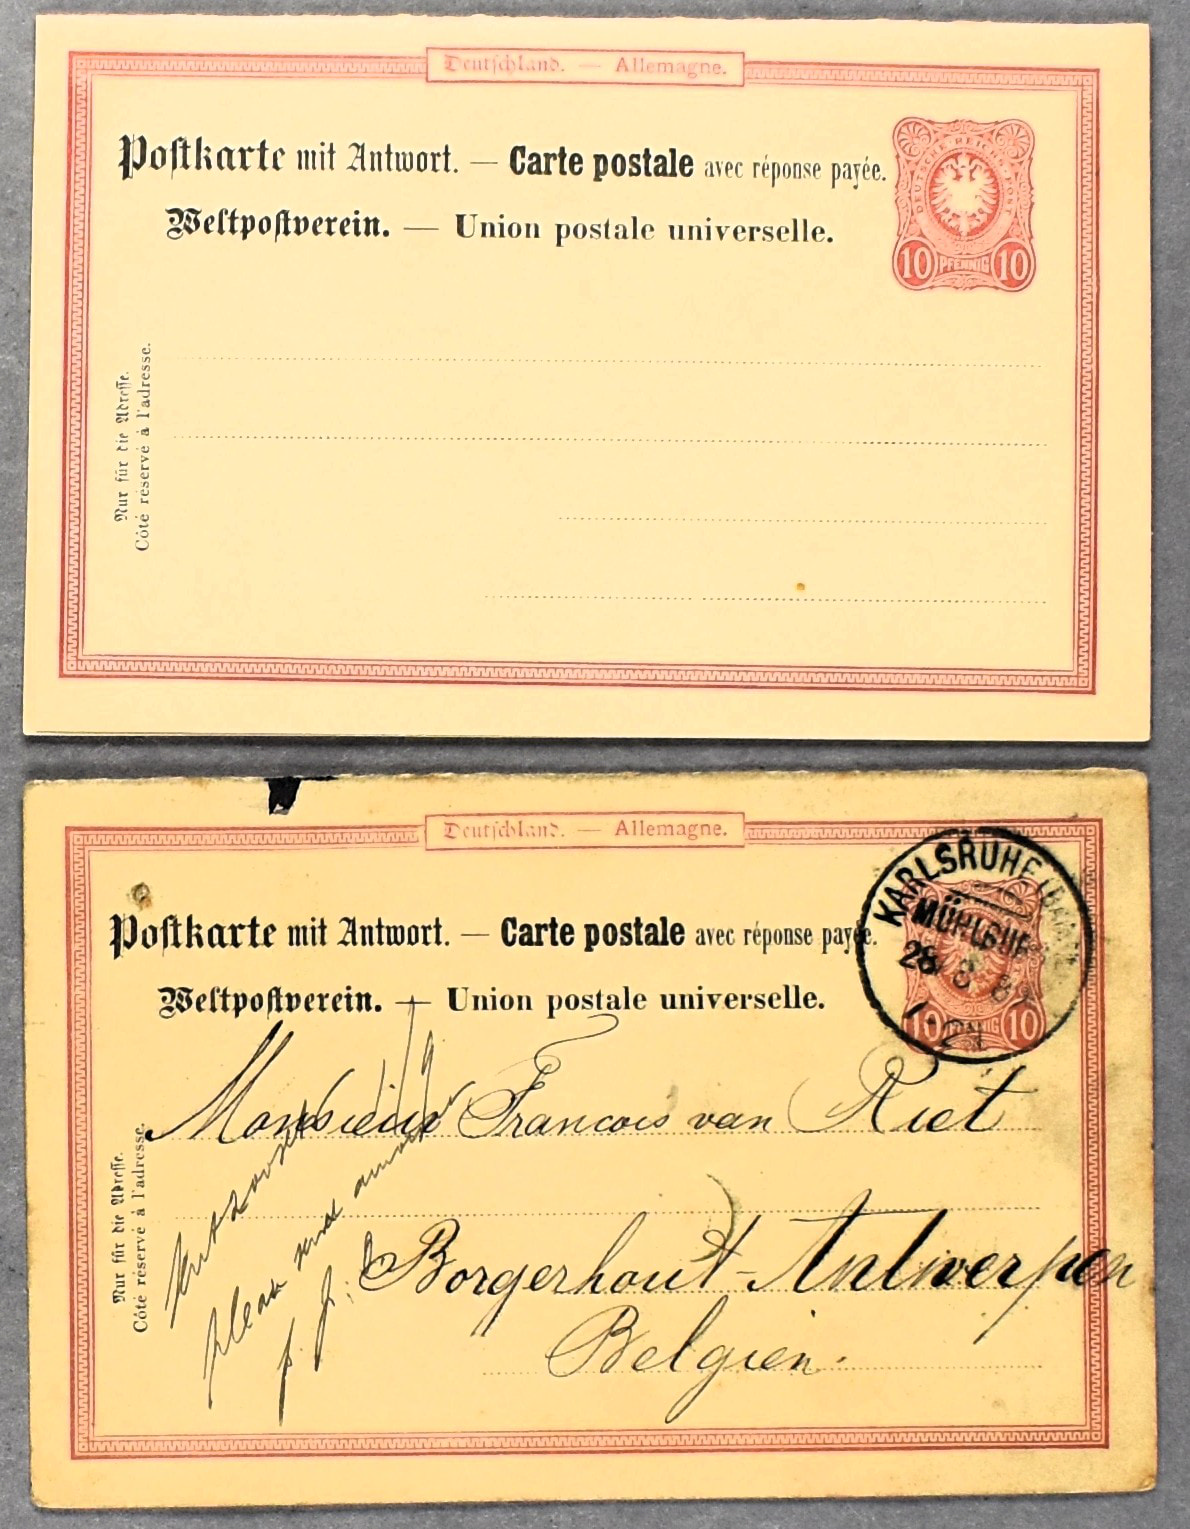 Deutschland. — Allemagne.
Postkarte mit Antwort. — Carte postale avec réponse payée.
Weltpostverein. — Union postale universelle.
DEUTSCHE REICHS-POST
10 PFENNIG 10
Nur für die Adresse.
Côté réservé à l'adresse.
Deutschland. — Allemagne.
Postkarte mit Antwort. — Carte postale avec réponse payée.
Weltpostverein. — Union postale universelle.
KARLSRUHE
26 8
10 10
Monsieur Francois van Riet
Borgerhout-Antwerpen
Belgien.
please send
Nur für die Adresse.
Côté réservé à l'adresse.